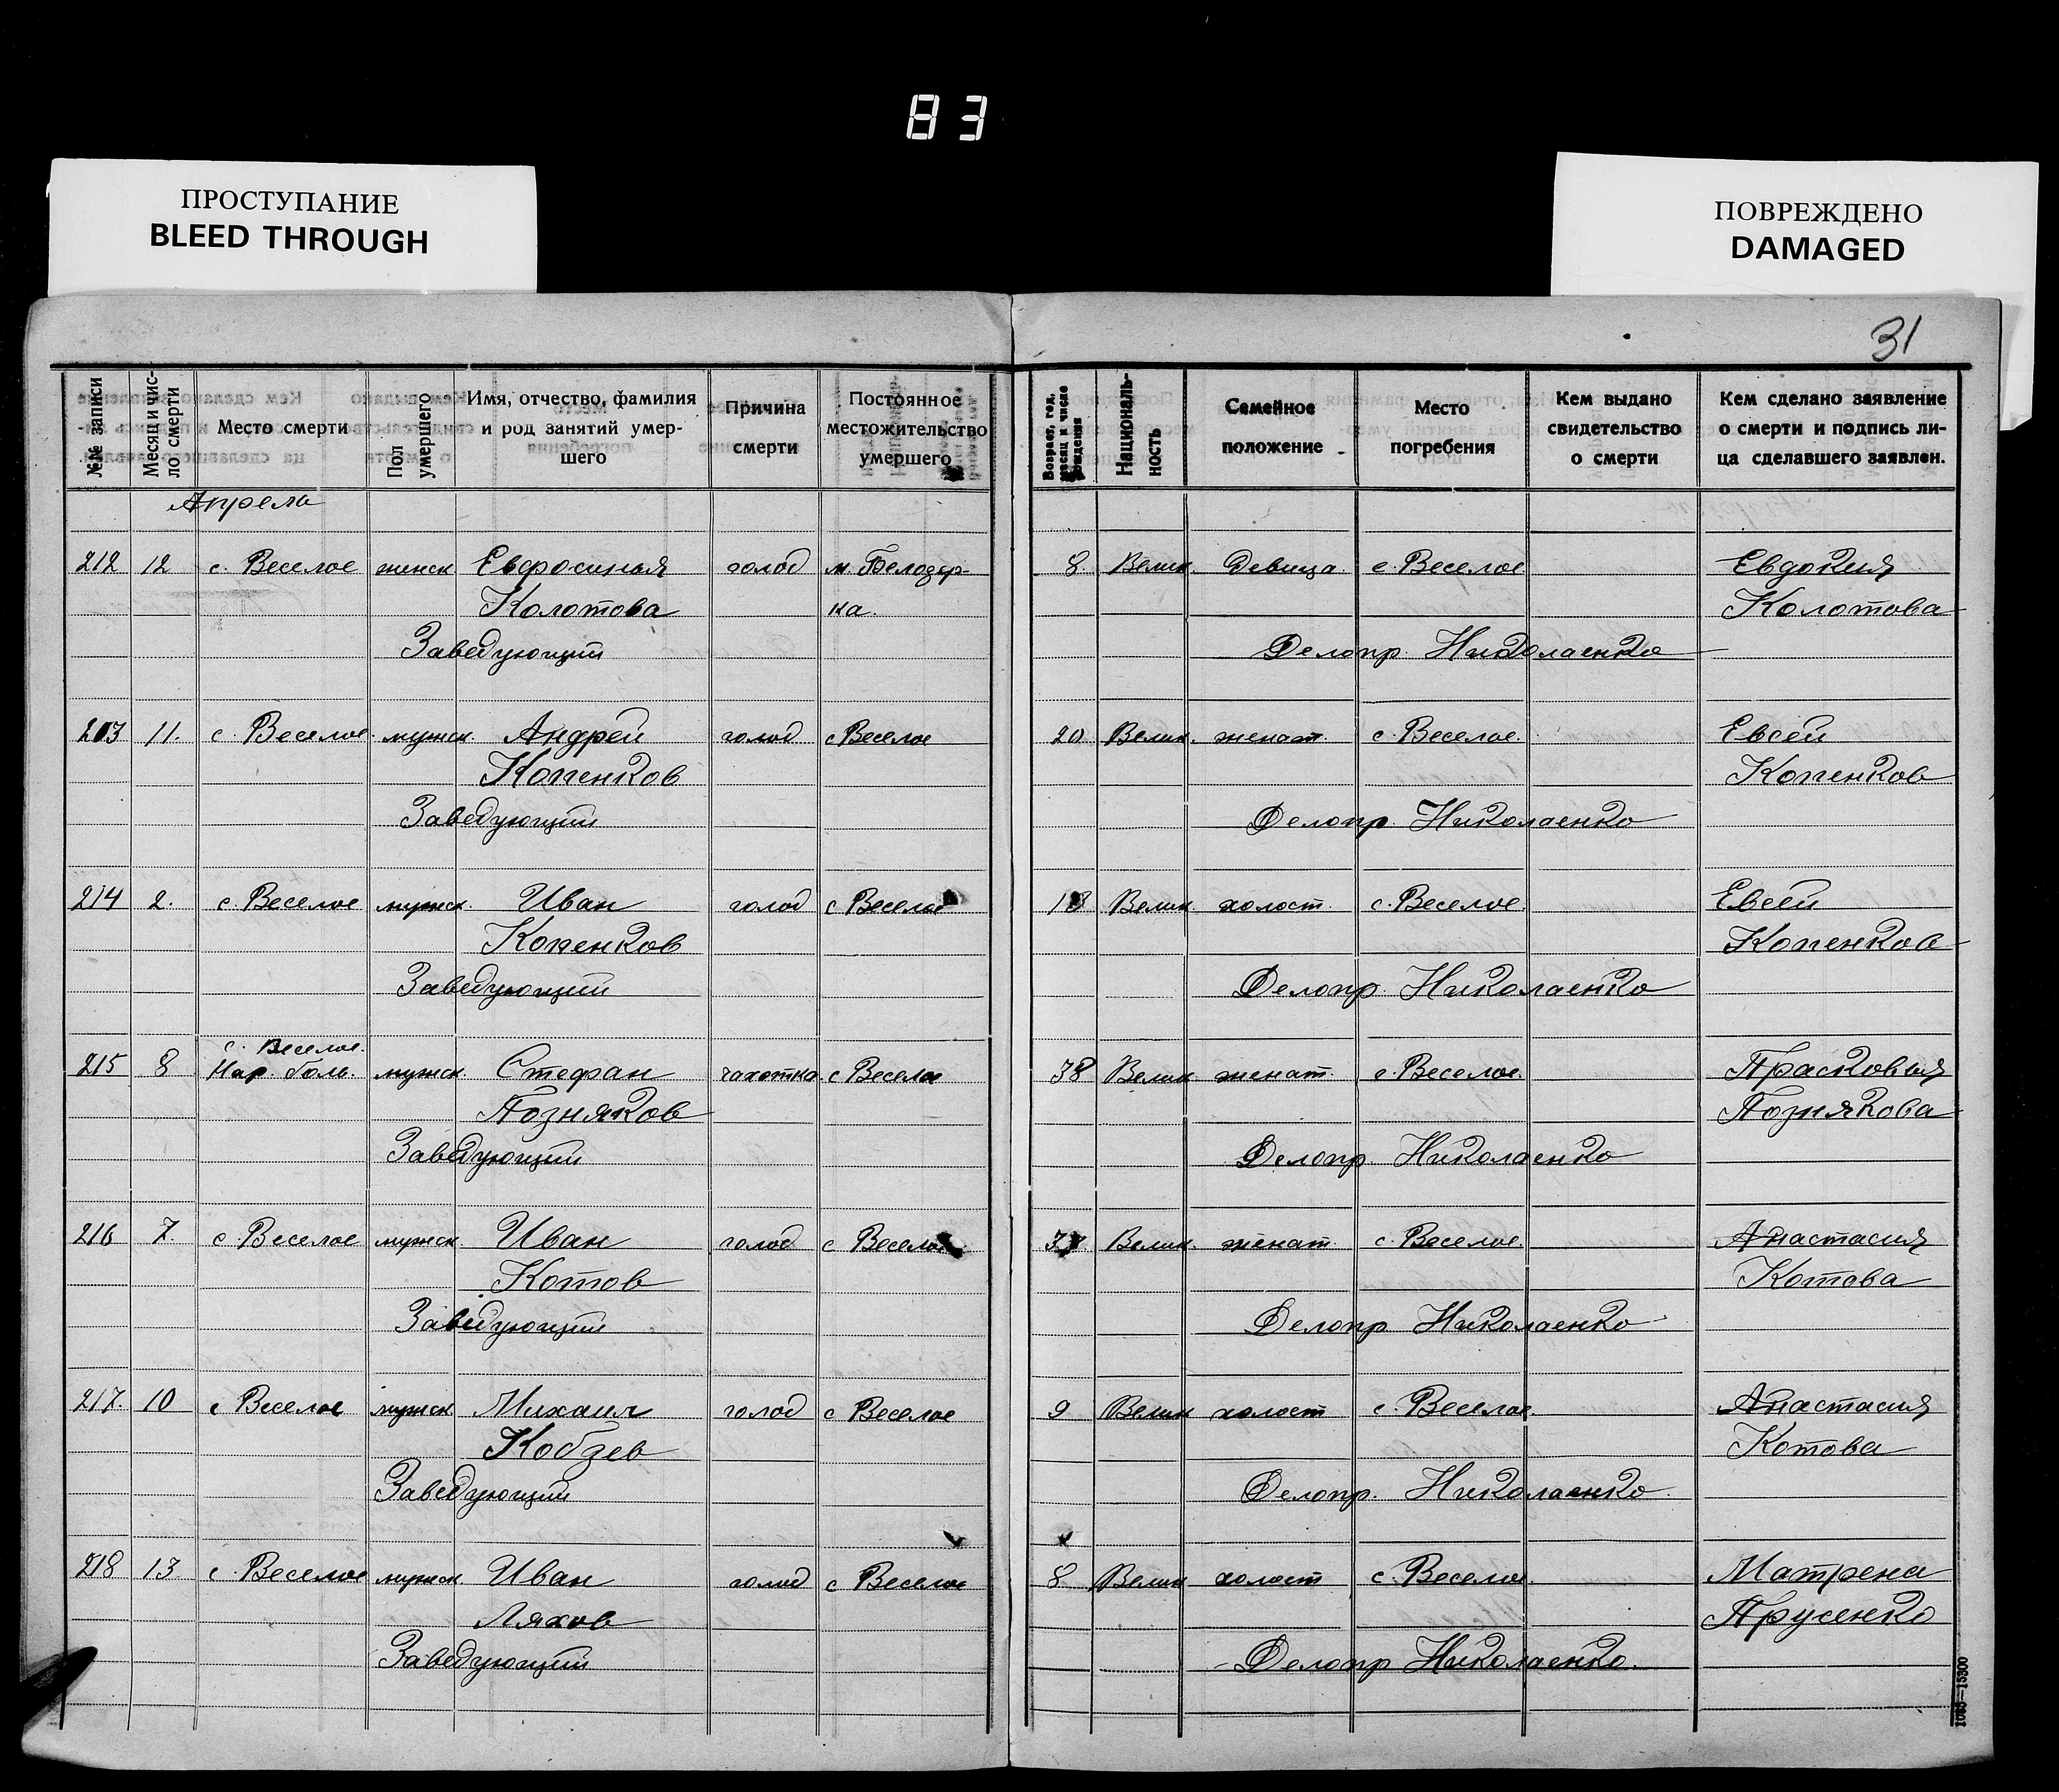 83
ПРОСТУПАНИЕ
BLEED THROUGH
ПОВРЕЖДЕНО
DAMAGED
31
№№ записи
Месяц и чис-
ло смерти
Место смерти
Пол
умершего
Имя, отчество, фамилия
и род занятий умер-
шего
Причина
смерти
Постоянное
местожительство
умершего
Возраст, год,
месяц и число
рождения
Националь-
ность
Семейное
положение
Место
погребения
Кем выдано
свидетельство
о смерти
Кем сделано заявление
о смерти и подпись ли-
ца сделавшего заявлен.
Апрель
212 12 с. Веселое женск Евфросиния голод м. Белозер- 8 Велик. Девица с. Веселое Евдокия
Колотова ка. Колотова
Заведующий Делопр. Николаенко
213 11. с. Веселое мужск. Андрей голод с Веселое 20 Велик. женат. с. Веселое. Евсей
Копенков Копенков
Заведующий Делопр. Николаенко
214 2. с. Веселое мужск. Иван голод с Веселое 18 Велик. холост. с. Веселое. Евсей
Копенков Копенков
Заведующий Делопр. Николаенко
с. Веселое.
215 8 Нар. боль. мужск. Стефан чахотка. с Веселое 38 Велик. женат. с. Веселое. Прасковья
Позняков Познякова
Заведующий Делопр. Николаенко
216 7. с. Веселое мужск. Иван голод с Веселое Велик. женат. с. Веселое. Анастасия
Котов Котова
Заведующий Делопр Николаенко
217. 10 с Веселое мужск. Михаил голод с Веселое 9 Велик холост с. Веселое. Анастасия
Кобзев Котова
Заведующий Делопр. Николаенко.
218 13 с. Веселое мужск. Иван голод с Веселое 8 Велик холост с. Веселое. Матрена
Ляхов Прусенко
Заведующий Делопр Николаенко.
1085—15300